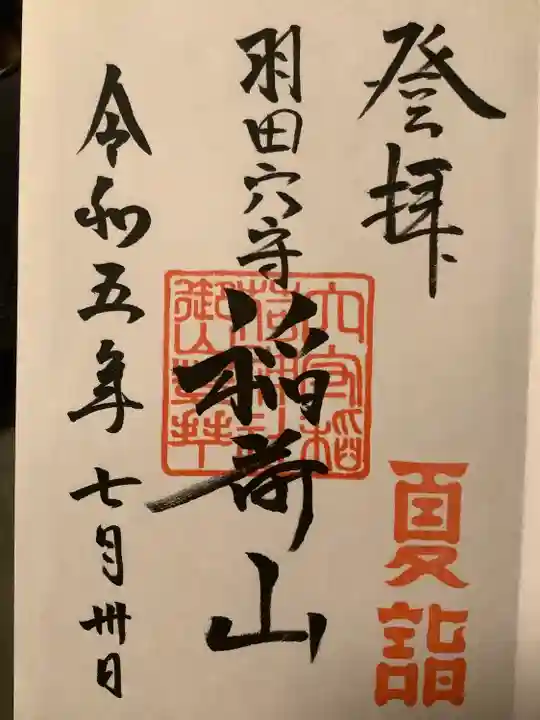 登拝
夏詣
羽田穴守
稲荷山
穴守稲
荷神社
御山参拝
令和五年七月卅日